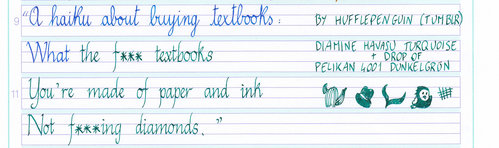 "A haiku about buying textbooks:
BY HUFFLEPENGUIN (TUMBLR)
What the f*** textbooks
DIAMINE HAVASU TURQUOISE
+ DROP OF
PELIKAN 4001 DUNKELGRÜN
You're made of paper and ink
Not f***ing diamonds."
9
11